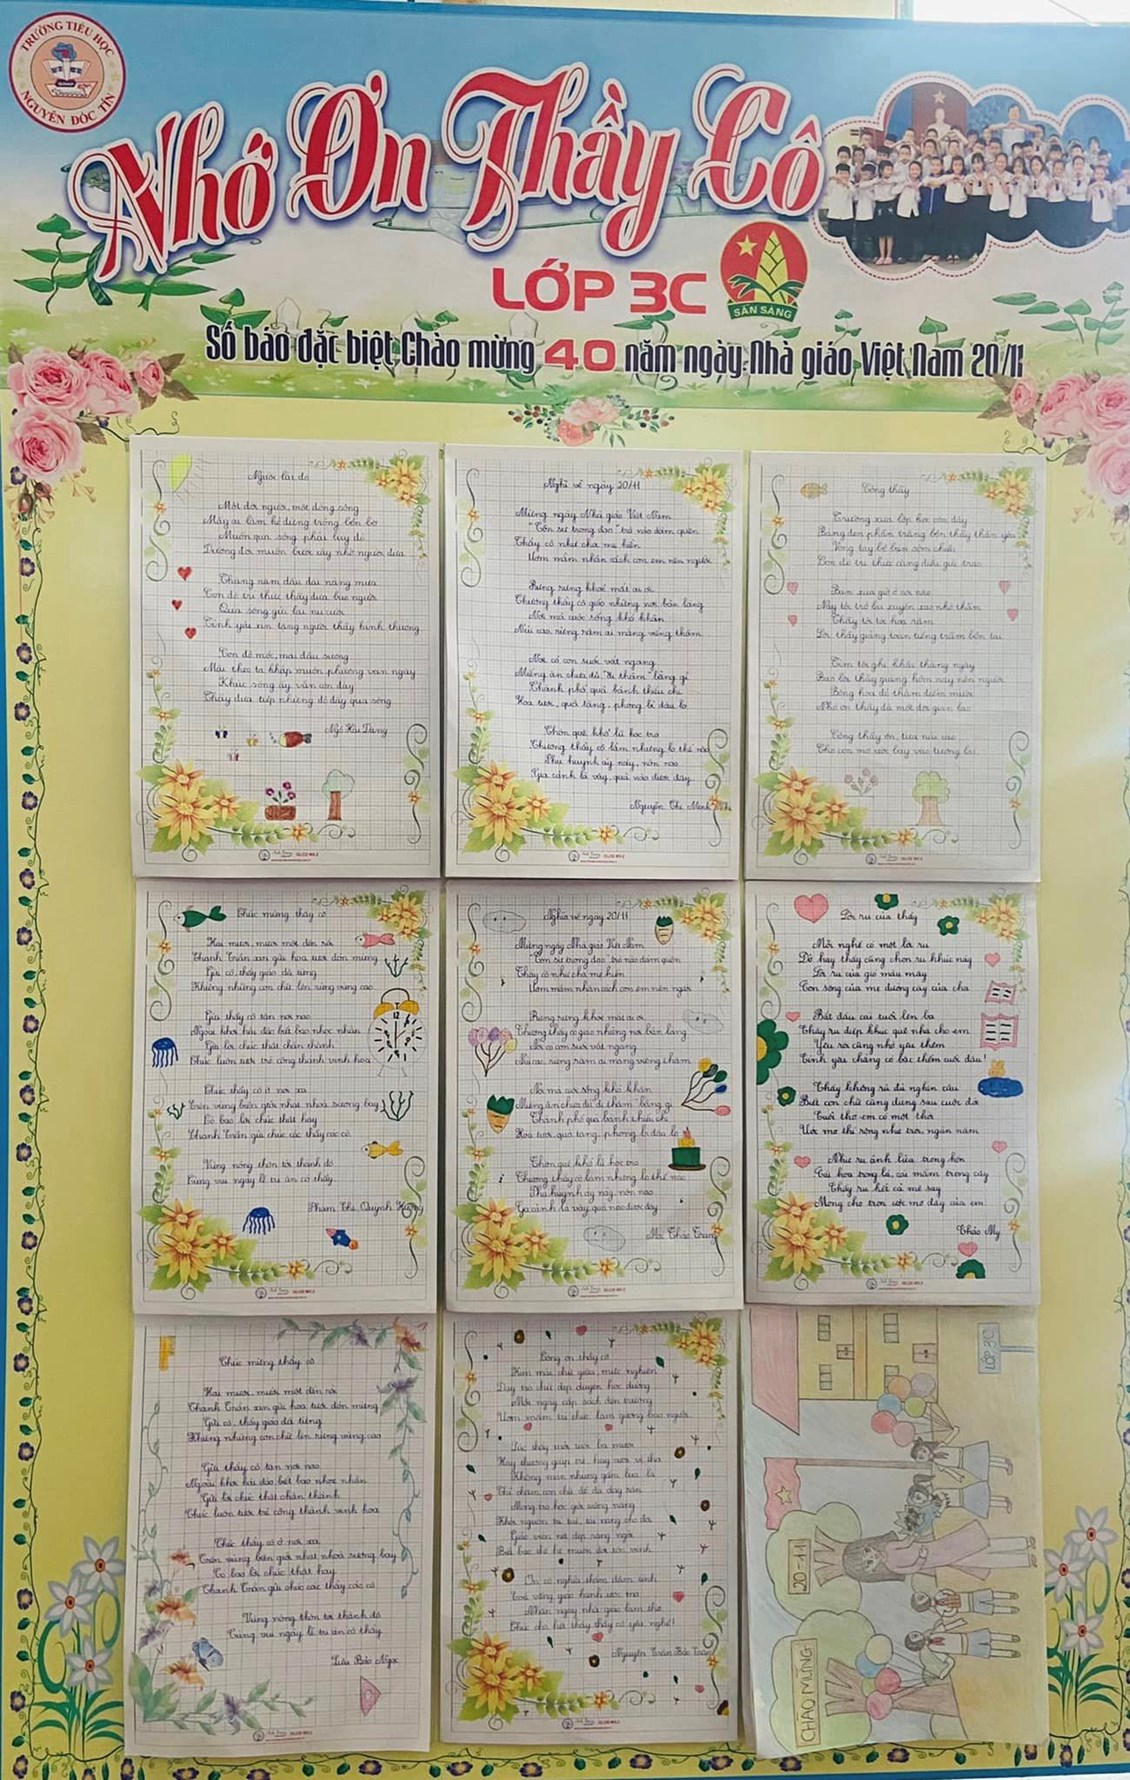 TRƯỜNG TIỂU HỌC
NGUYỄN ĐỐC TÍN
Nhớ Ơn Thầy Cô
LỚP 3C
SẴN SÀNG
Số báo đặc biệt Chào mừng 40 năm ngày Nhà giáo Việt Nam 20/11
Người lái đò
Một đời người, một dòng sông
Mấy ai làm kẻ đứng trông bến bờ
Muốn qua sông phải lụy đò
Đường đời muôn bước cậy nhờ người đưa
Tháng năm dầu dãi nắng mưa
Con đò tri thức thầy đưa bao người
Qua sông gửi lại nụ cười
Tình yêu xin tặng người thầy kính thương
Con đò mộc, mái đầu sương
Mãi theo ta khắp muôn phương vạn ngày
Khúc sông ấy vẫn còn đây
Thầy đưa tiếp những đò đầy qua sông
Ngô Hải Đăng
Nghĩ về ngày 20/11
Mừng ngày Nhà giáo Việt Nam
"Tôn sư trọng đạo" trò nào dám quên
Thầy cô như cha mẹ hiền
Ươm mầm nhân cách con em nên người
Rưng rưng khoé mắt ai ơi
Thương thầy cô giáo những nơi bản làng
Nơi mà cuộc sống khó khăn
Núi cao, riêng răm ai măng vững thăm
Nơi có con suối vắt ngang
Miếng ăn chưa đủ "đi thăm" bằng gì
Thành phố quà bánh thiếu chi
Hoa tươi, quà tặng, phong bì đâu lo
Thôn quê khổ lũ học trò
Thương thầy cô lắm nhưng lo thế nào
Phụ huynh áy náy, nôn nao
Gia cảnh là vậy, quà nào được đây
Nguyễn Thị Minh
Công thầy
Trường xưa lớp học còn đây
Bảng đen phấn trắng bên thầy thân yêu
Vòng tay bè bạn sớm chiều
Con đò tri thức cùng dìu
Bạn xưa giờ ở nơi nào
Nay tôi trở lại xuyến xao nhớ thầm
Thầy tôi tóc hoa râm
Lời thầy giảng toán tiếng trầm bên tai
Tìm tôi ghi khắc tháng ngày
Bao lời thầy giảng hôm nay nên người
Bông hoa đỏ thắm điểm mười
Nhớ ơn thầy đã một đời gian lao
Công thầy ơn, tựa núi cao
Cho con mơ ước bay vào tương lai
Chúc mừng thầy cô
Hai mươi, mười một đến rồi
Thanh Trần xin gửi hoa tươi đón mừng
Gửi cô, thầy giáo đã từng
Khiêng những con chữ lên rừng vùng cao
Gửi thầy cô tận nơi nao
Ngoài khơi hải đảo biết bao nhọc nhằn
Gửi lời chúc thật chân thành
Chúc luôn tươi trẻ công thành vinh hoa
Chúc thầy cô ở nơi xa
Trên vùng biên giới nhạt nhoà sương bay
Có bao lời chúc thật hay
Thanh Trần gửi chúc các thầy các cô
Vùng nông thôn tới thành đô
Cùng vui ngày lễ tri ân cô thầy.
Phạm Thị Quỳnh Hương
Nghĩ về ngày 20/11
Mừng ngày Nhà giáo Việt Nam
"Tôn sư trọng đạo" trò nào dám quên
Thầy cô như cha mẹ hiền
Ươm mầm nhân cách con em nên người
Rưng rưng khoé mắt ai ơi
Thương thầy cô giáo những nơi bản làng
Nơi có con suối vắt ngang
Núi cao, riêng răm ai mang vững thăm
Nơi mà cuộc sống khó khăn
Miếng ăn chưa đủ "đi thăm" bằng gì
Thành phố quà bánh thiếu chi
Hoa tươi, quà tặng, phong bì đâu lo
Thôn quê khổ lũ học trò
Thương thầy cô lắm nhưng lo thế nào
Phụ huynh áy náy nôn nao
Gia cảnh là vậy quà nào được đây
Thảo Trang
Lời ru của thầy
Mỗi nghề có một lời ru
Dở hay thầy cũng chọn ru khúc này
Lời ru của gió màu mây
Con sông của mẹ đường cày của cha
Bắt đầu cái tuổi lên ba
Thầy ru điệp khúc quê nhà cho em
Yêu rồi cũng nhớ yêu thêm
Tình yêu chẳng có bậc thềm cuối đâu!
Thầy không ru đủ nghìn câu
Biết con chữ cũng đứng sau cuộc đời
Tuổi thơ em có một thời
Ước mơ thì rộng như trời, ngàn năm
Như ru ánh lửa trong hồn
Cái hoa trong lá, cái mầm trong cây
Thầy ru hết cả mê say
Mong cho trọn ước mơ đầy của em.
Thảo My
Chúc mừng thầy cô
Hai mươi, mười một đến rồi
Thanh Trần xin gửi hoa tươi đón mừng
Gửi cô, thầy giáo đã từng
Khiêng những con chữ lên rừng vùng cao
Gửi thầy cô tận nơi nao
Ngoài khơi hải đảo biết bao nhọc nhằn
Gửi lời chúc thật chân thành
Chúc luôn tươi trẻ công thành vinh hoa
Chúc thầy cô ở nơi xa
Trên vùng biên giới nhạt nhoà sương bay
Có bao lời chúc thật hay
Thanh Trần gửi chúc các thầy các cô
Vùng nông thôn tới thành đô
Cùng vui ngày lễ tri ân cô thầy
Lưu Bảo Ngọc
Công ơn thầy cô
Duy trì chữ đẹp duyên học đường
Mỗi ngày cắp sách đến trường
Ươm mầm tri thức làm gương bao người
Hay thương giúp trẻ, hay cười vị tha
Giáo viên nét đẹp sáng ngời
Nhân ngày nhà giáo làm thơ
Nguyễn Trần Bảo Trâm
LỚP 3C
20-11
CHÀO MỪNG